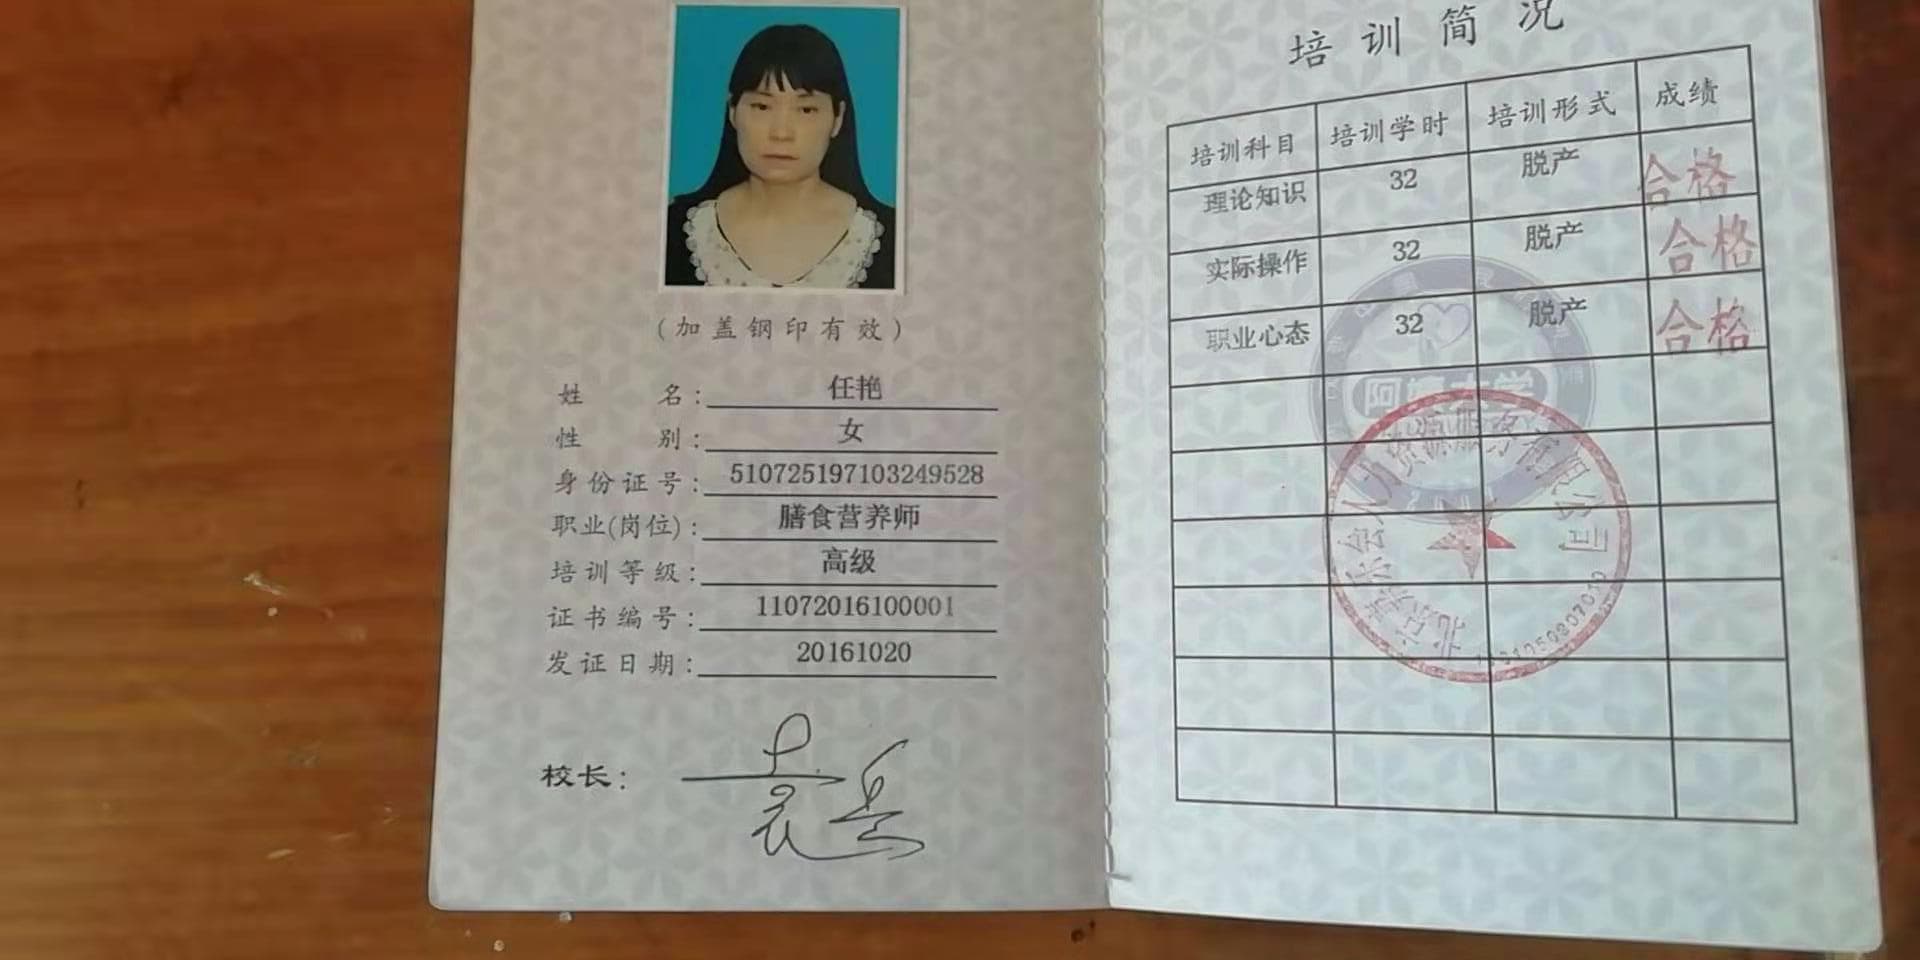 (加盖钢印有效)
姓 名: 任艳
性 别: 女
身份证号: 510725197103249528
职业(岗位): 膳食营养师
培训等级: 高级
证书编号: 11072016100001
发证日期: 20161020
校长:
培训简况
培训科目 培训学时 培训形式 成绩
理论知识 32 脱产 合格
实际操作 32 脱产 合格
职业心态 32 脱产 合格
人力资源服务有限公司